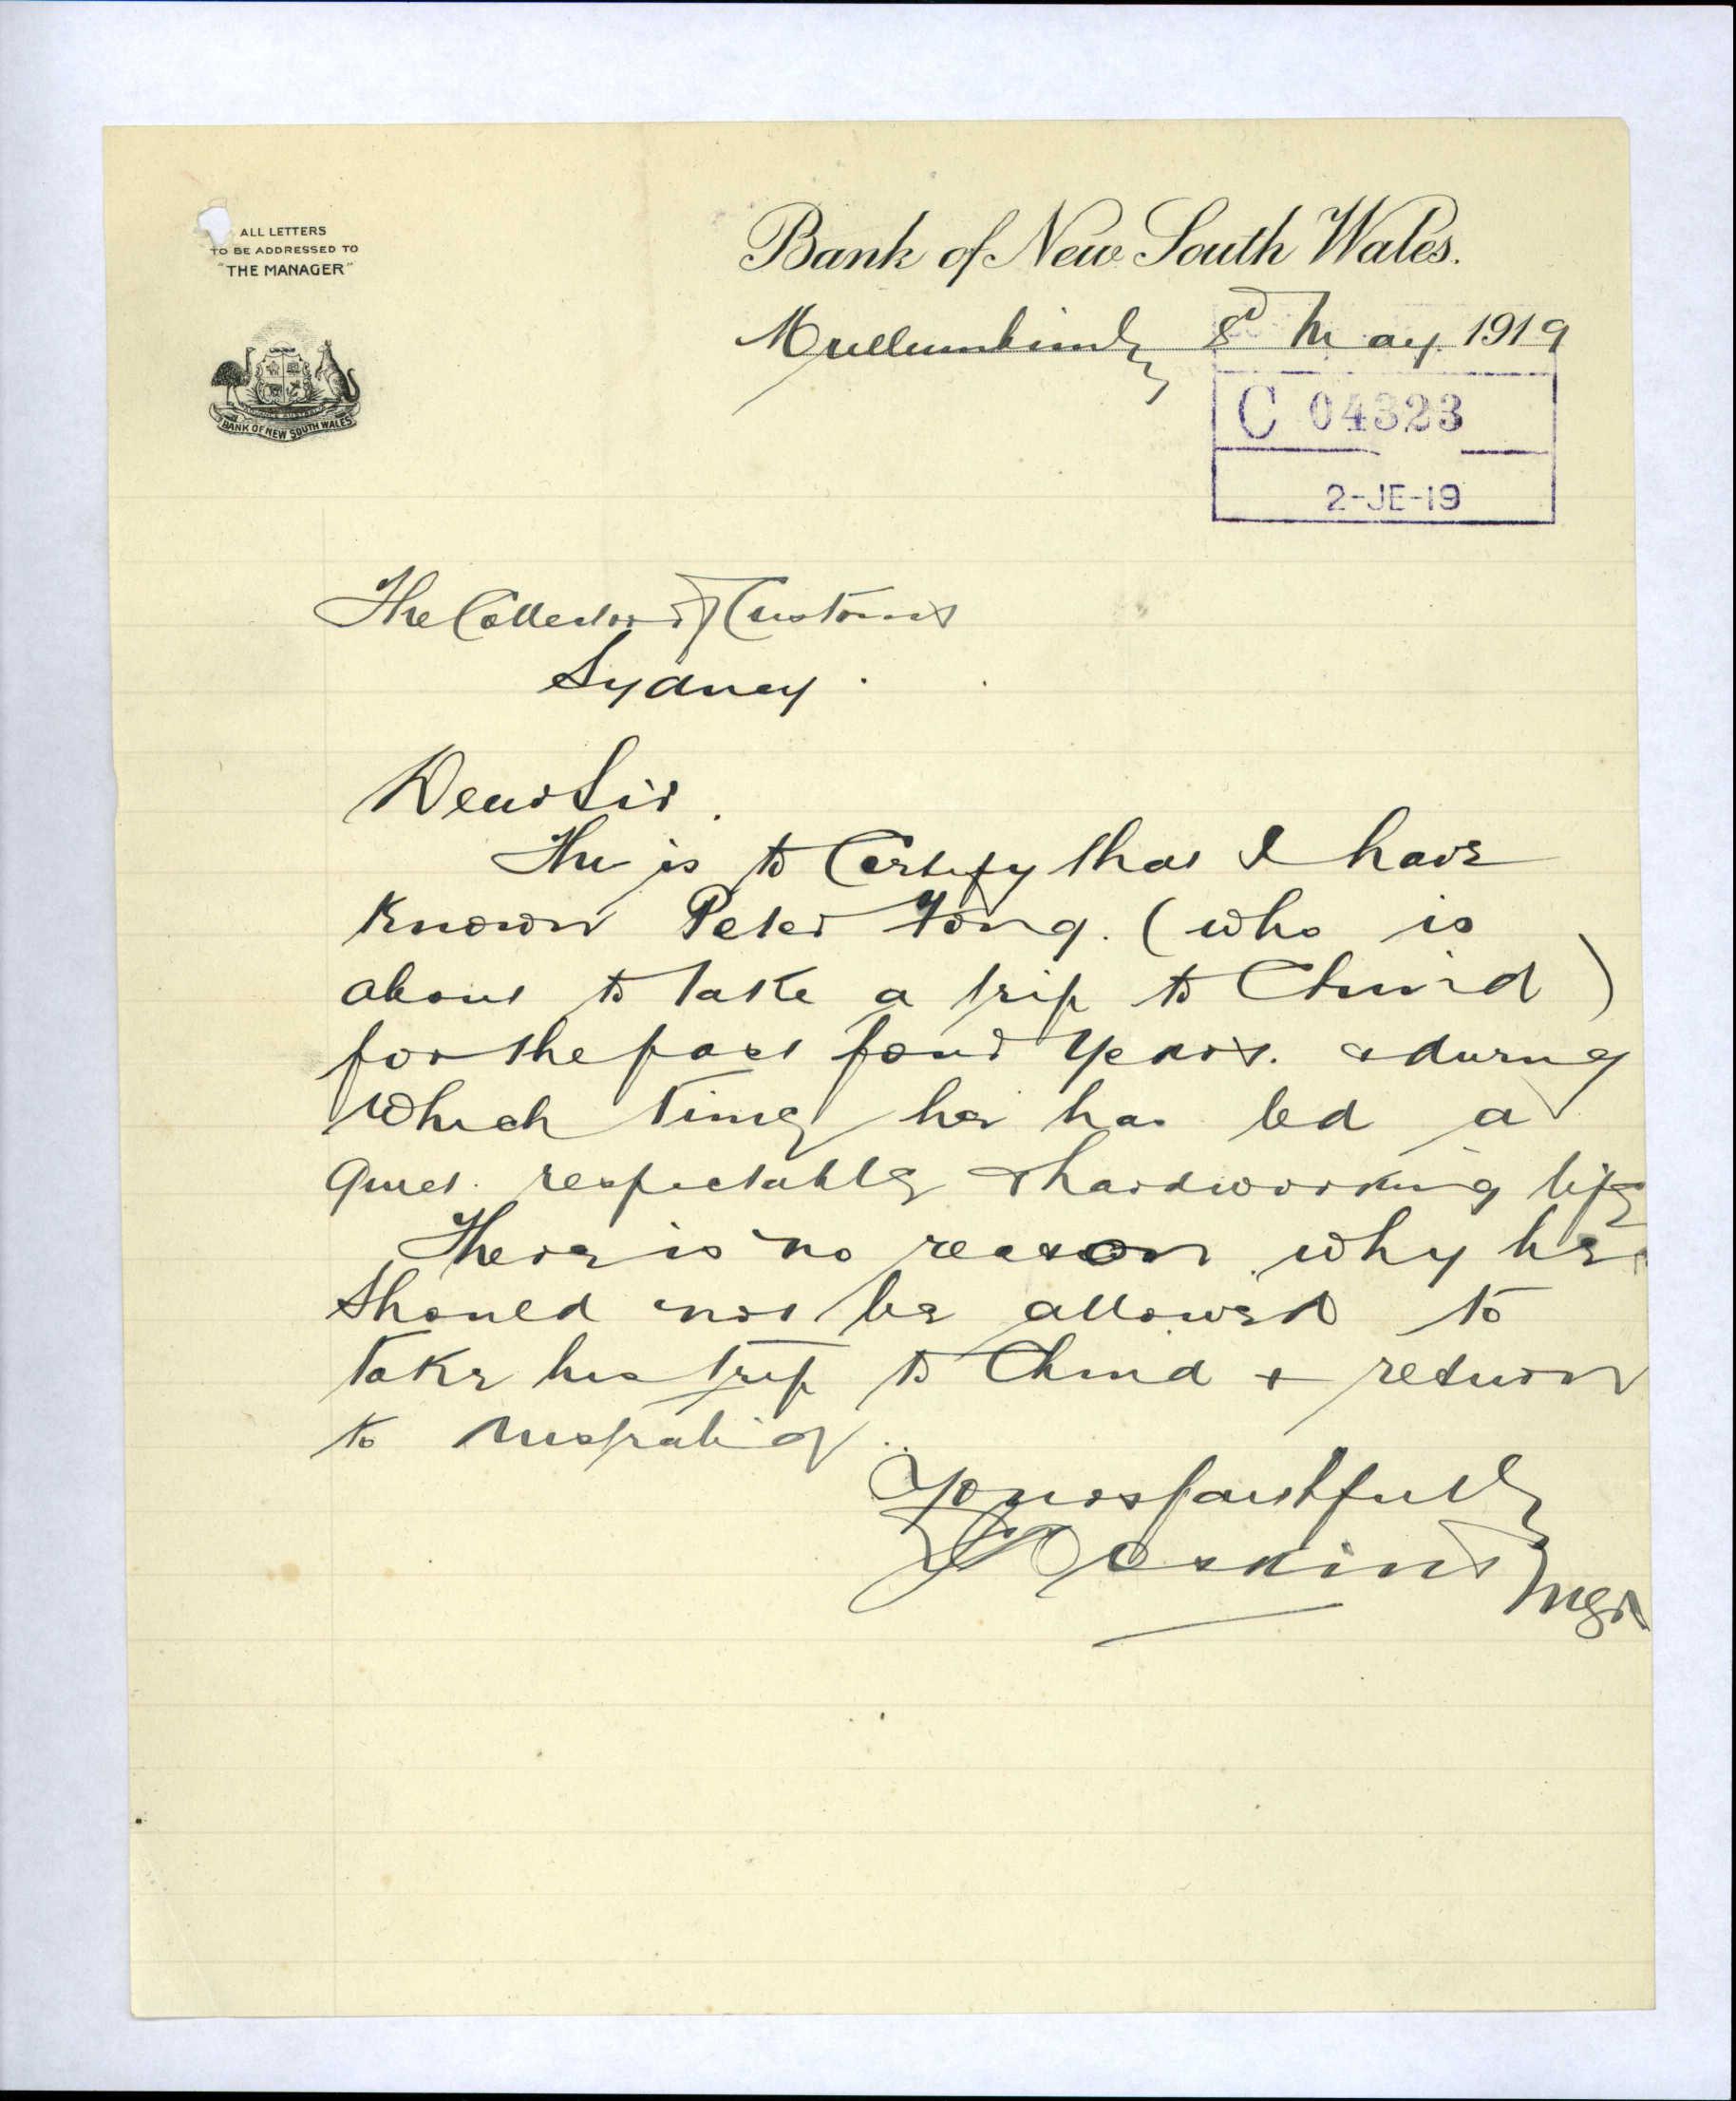 ALL LETTERS
TO BE ADDRESSED TO
"THE MANAGER"
ADVANCE AUSTRALIA
BANK OF NEW SOUTH WALES
Bank of New South Wales.
Mullumbimby 8th May 1919
C 04323
2-JE-19
The Collector of Customs
Sydney.
Dear Sir.
This is to Certify that I have
known Peter Tong. (who is
about to take a trip to China)
for the past four years. & during
which time he has led a
quiet. respectable & hardworking life
There is no reason why he
should not be allowed to
take his trip to China & return
to Australia.
Yours faithfully
Mgr